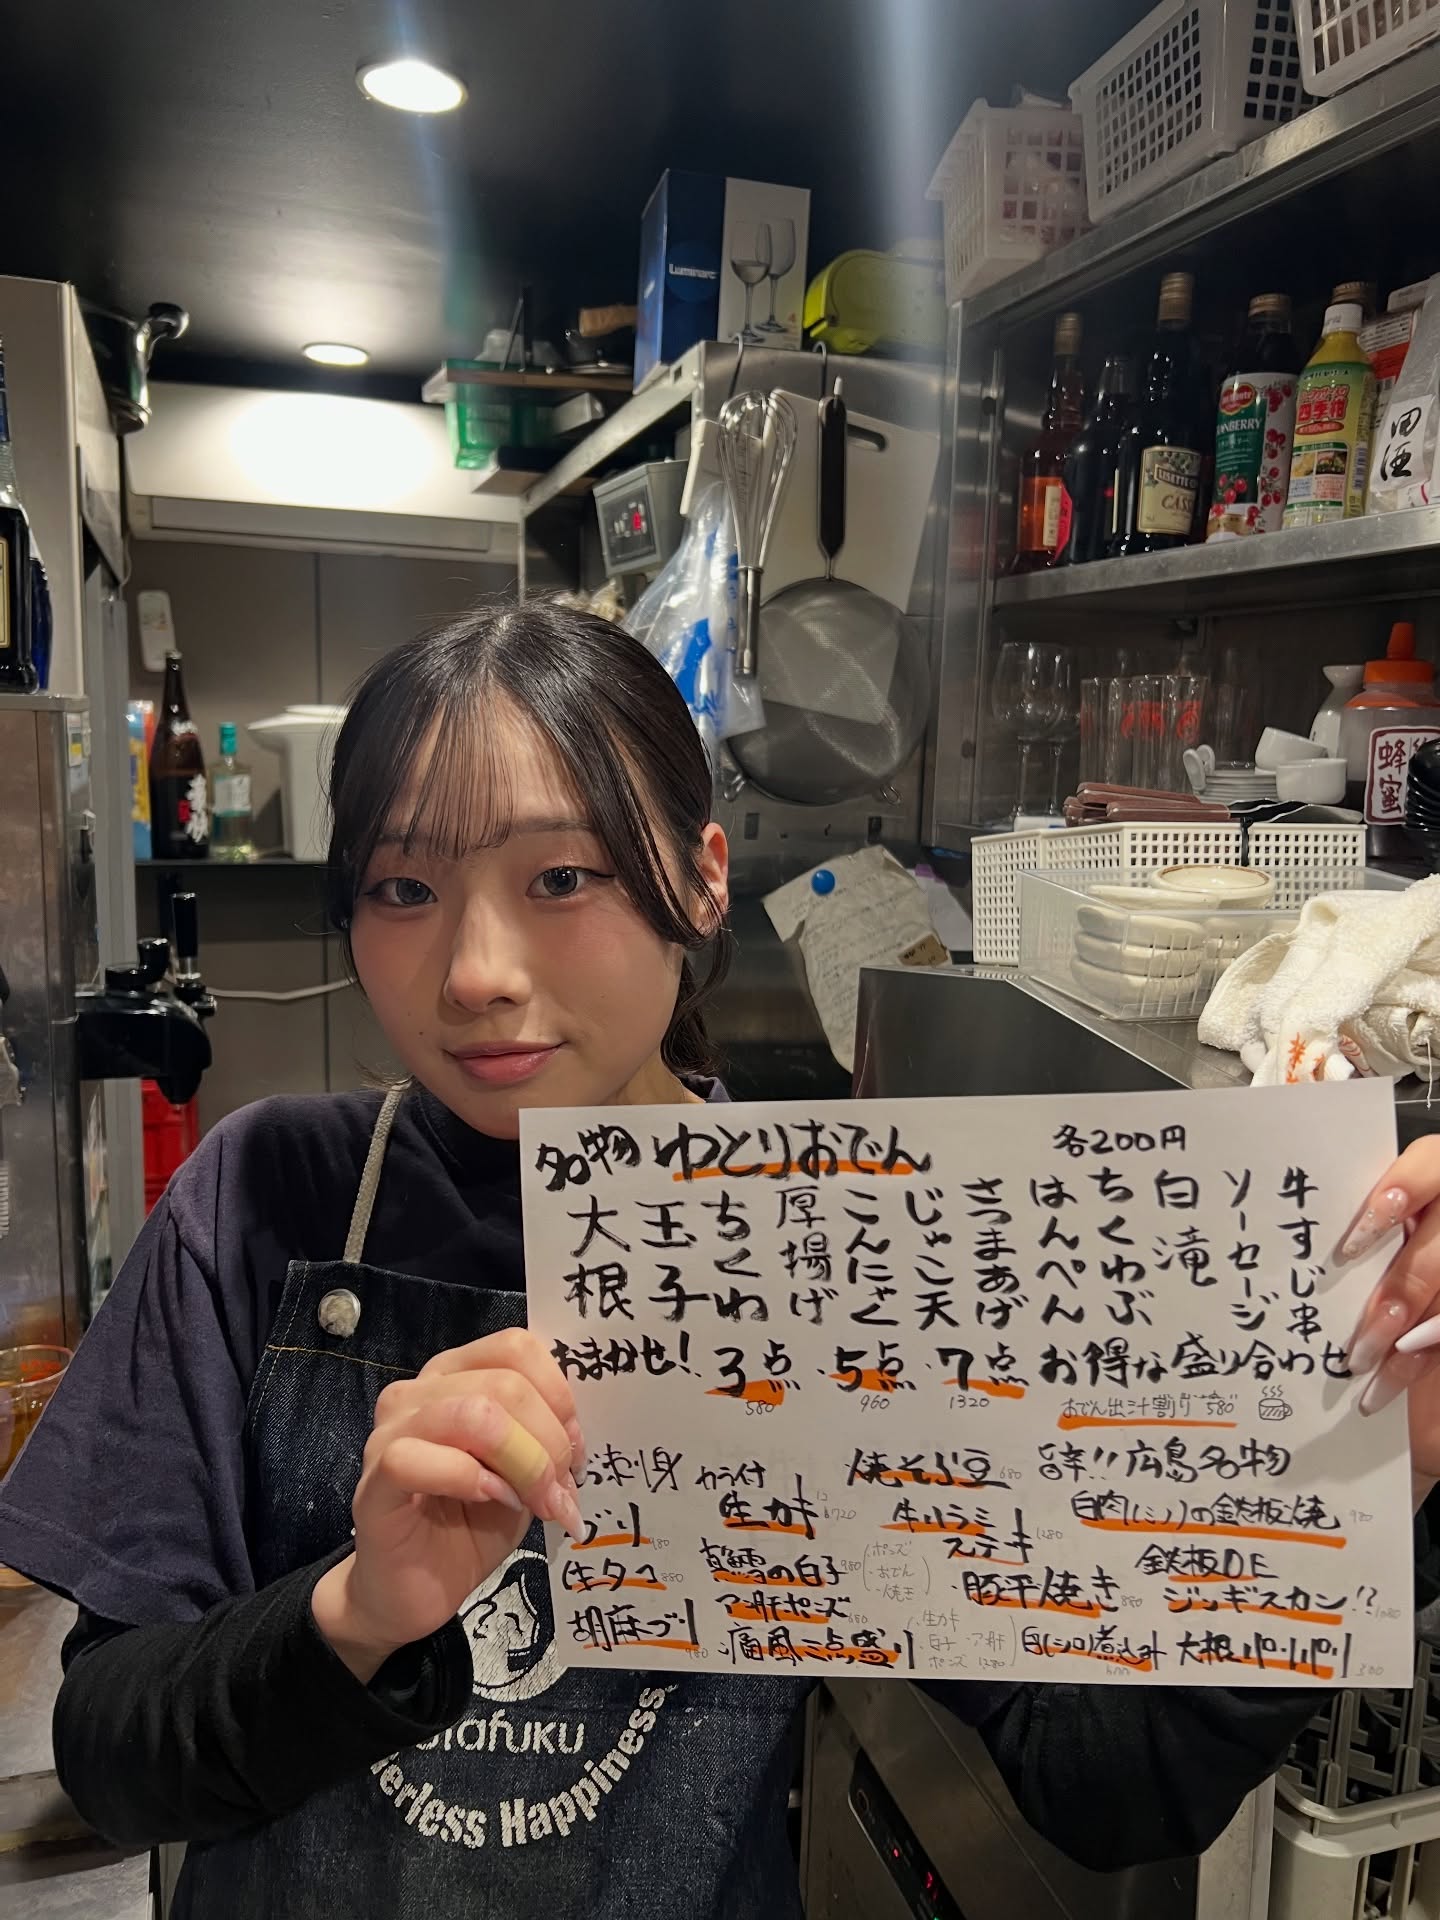 Luminarc
Del Monte
CRANBERRY
四季柑
田酒
CASSIS
蜂蜜
名物 ゆとりおでん 各200円
大根
玉子
ちくわ
厚揚げ
こんにゃく
じゃこ天
さつまあげ
はんぺん
ちくわぶ
白滝
ソーセージ
牛すじ串
おまかせ! 3点・5点・7点 お得な盛り合わせ
580 960 1320
おでん出汁割り 580
刺身
ブリ 980
生タコ 880
胡麻ブリ 980
カラ付
生カキ 720
真鱈の白子 980
(ポンズ
・おでん
・焼き)
アン肝ポンズ 680
痛風三点盛り
(生カキ
白子・アン肝
ポンズ 1280)
焼そら豆 680
牛ハラミ
ステーキ 1280
・豚平焼き 880
白(シロ)煮込み
旨辛!! 広島名物
白肉(ミノ)の鉄板焼 980
鉄板DE
ジンギスカン!? 1080
大根パリパリ 300
Otafuku
Happiness